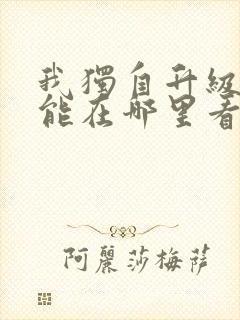 我獨自升級
能在哪里看
阿麗莎梅萨